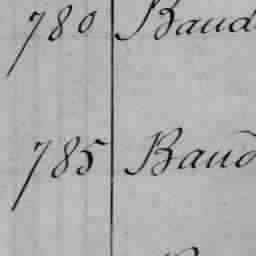 780 Baud
785 Baud